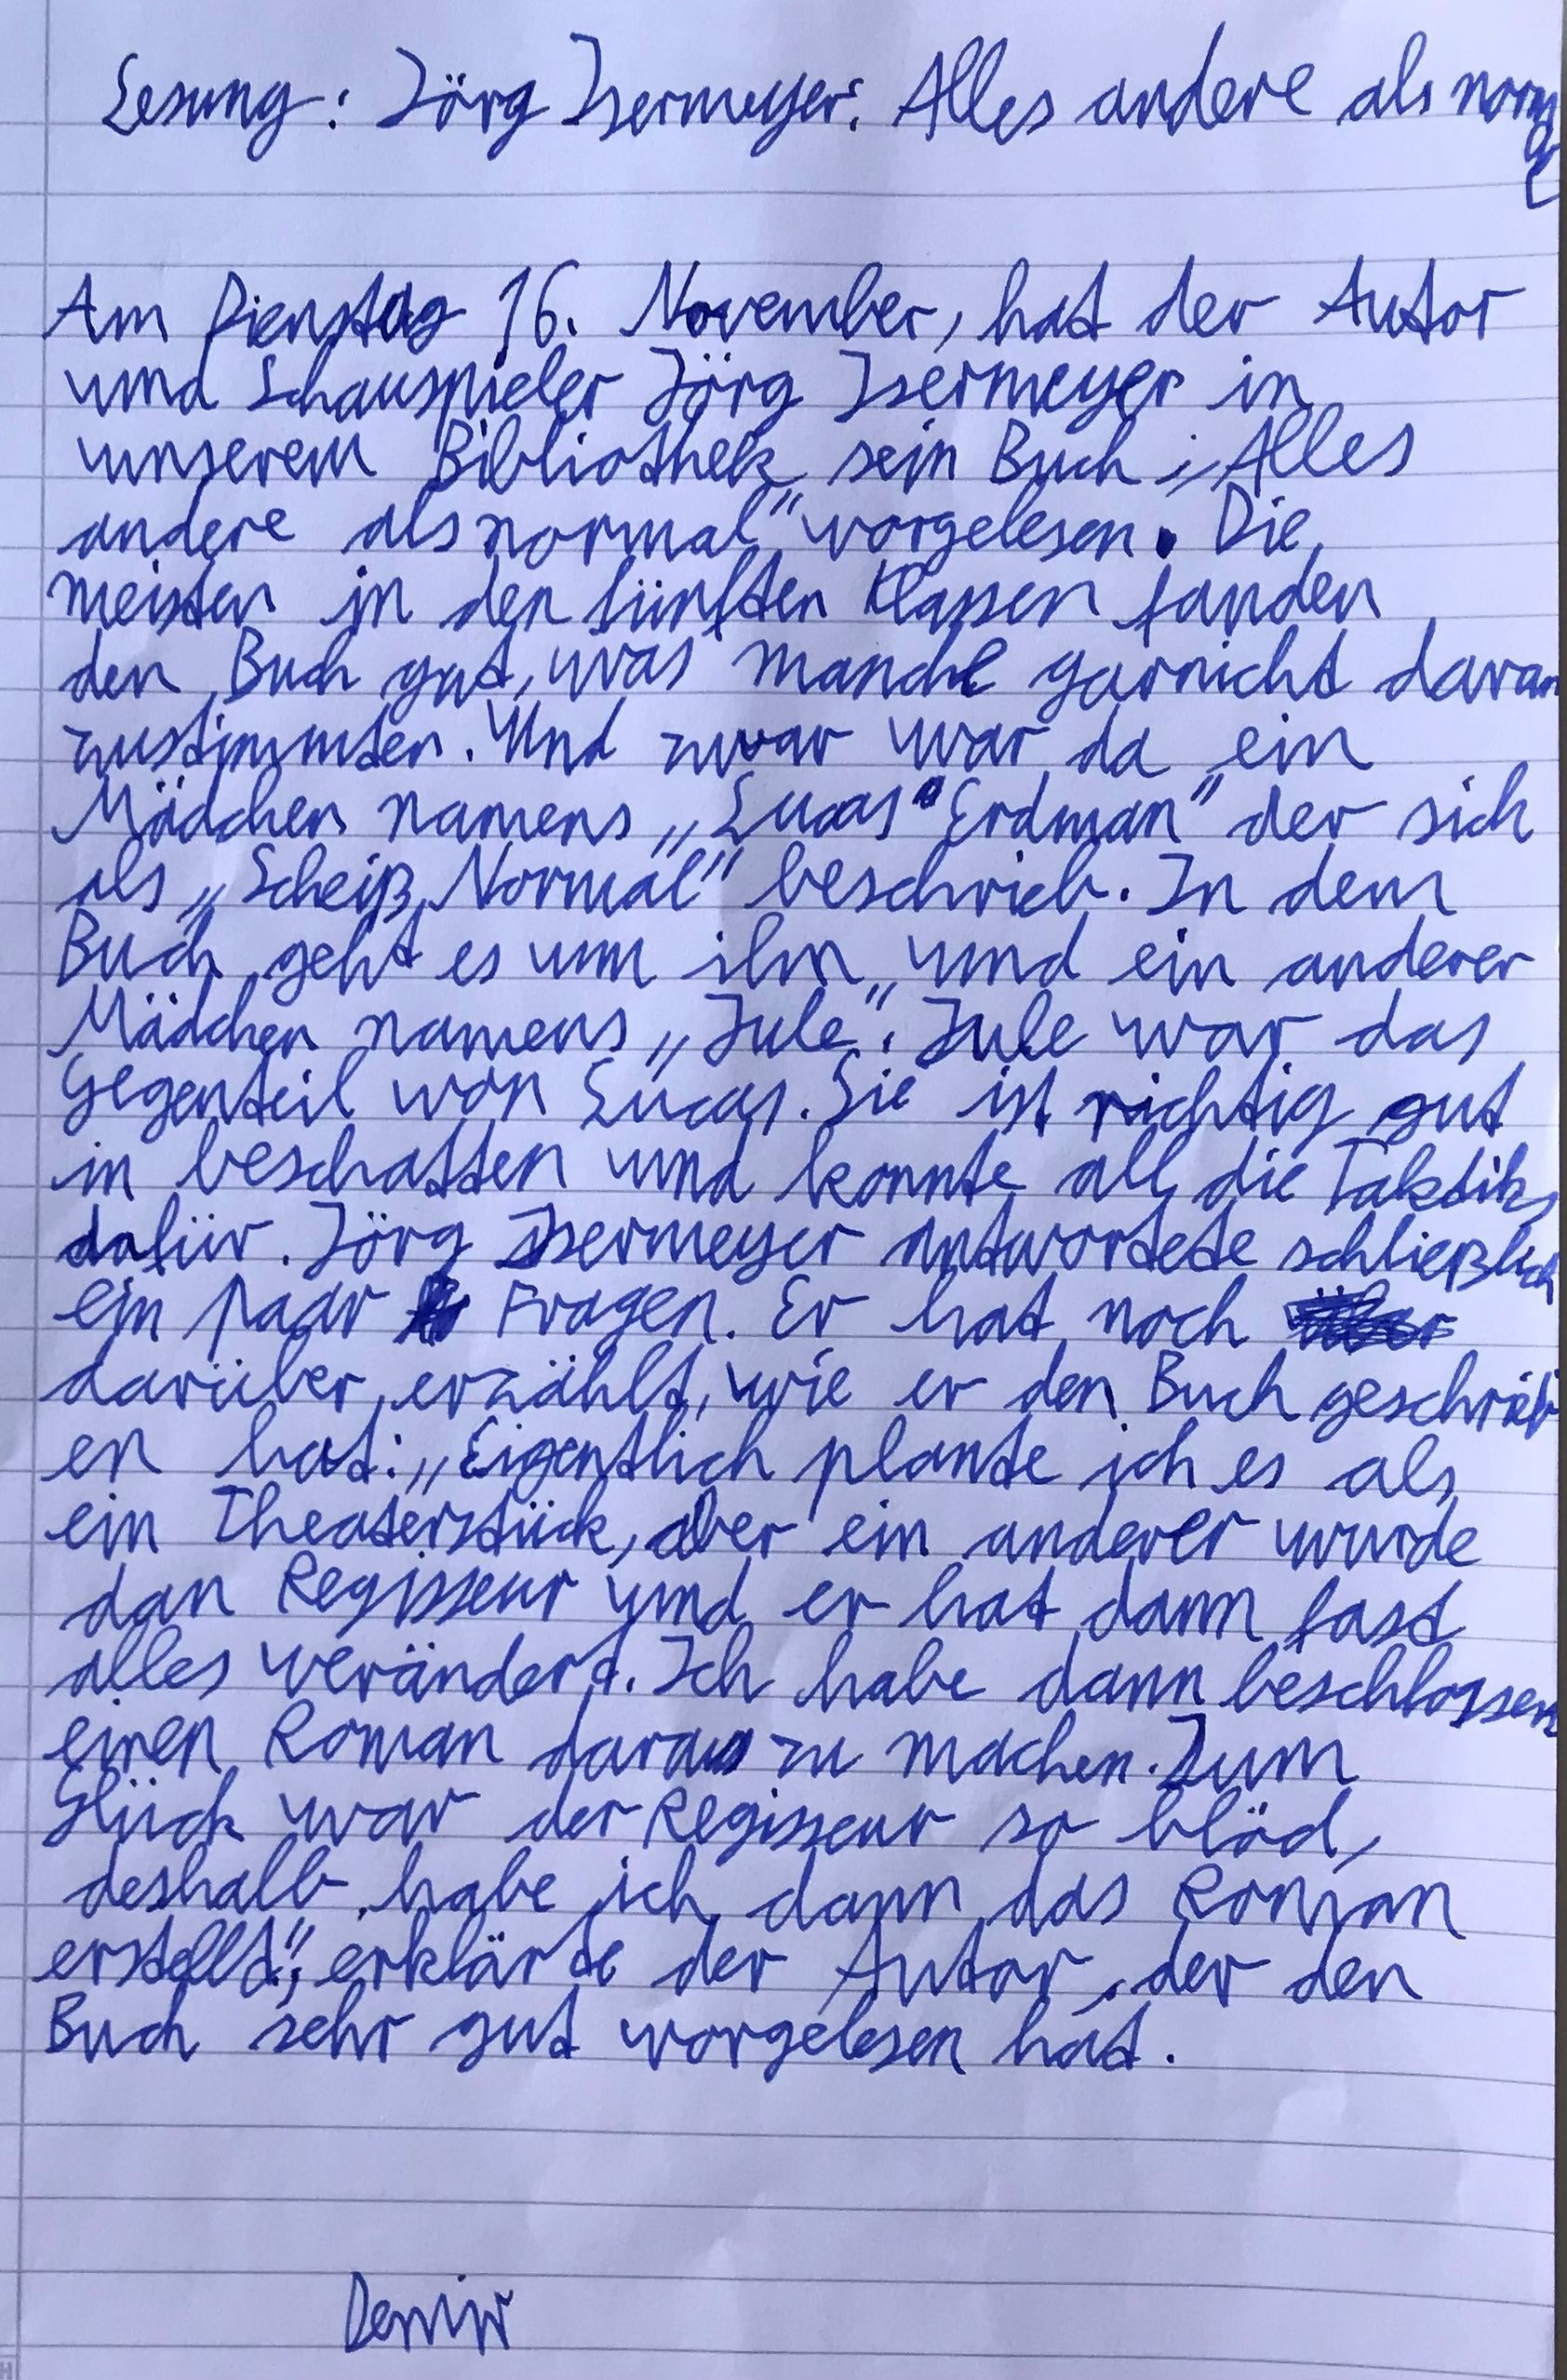 Lesung: Jörg Isermeyer: Alles andere als normal
Am Dienstag 16. November, hat der Autor
und Schauspieler Jörg Isermeyer in
unserem Bibliothek sein Buch: „Alles
andere als normal" vorgelesen. Die
meisten in den fünften Klassen fanden
den Buch gut, was manche garnicht daran
zustimmten. Und zwar war da ein
Mädchen namens „Lucas Erdman" der sich
als „Scheiß Normal" beschrieb. In dem
Buch geht es um ihn und ein anderer
Mädchen namens „Jule". Jule war das
Gegenteil von Lucas. Sie ist richtig gut
in beschatten und konnte all die Taktiks
dafür. Jörg Isermeyer antwortete schließlich
ein paar Fragen. Er hat noch
darüber erzählt, wie er den Buch geschrieb
en hat: „Eigentlich plante ich es als
ein Theaterstück, aber ein anderer wurde
dan Regisseur und er hat dann fast
alles verändert. Ich habe dann beschlossen
einen Roman daraus zu machen. Zum
Glück war der Regisseur so blöd,
deshalb habe ich dann das Roman
erstellt", erklärte der Autor, der den
Buch sehr gut vorgelesen hat.
Demir